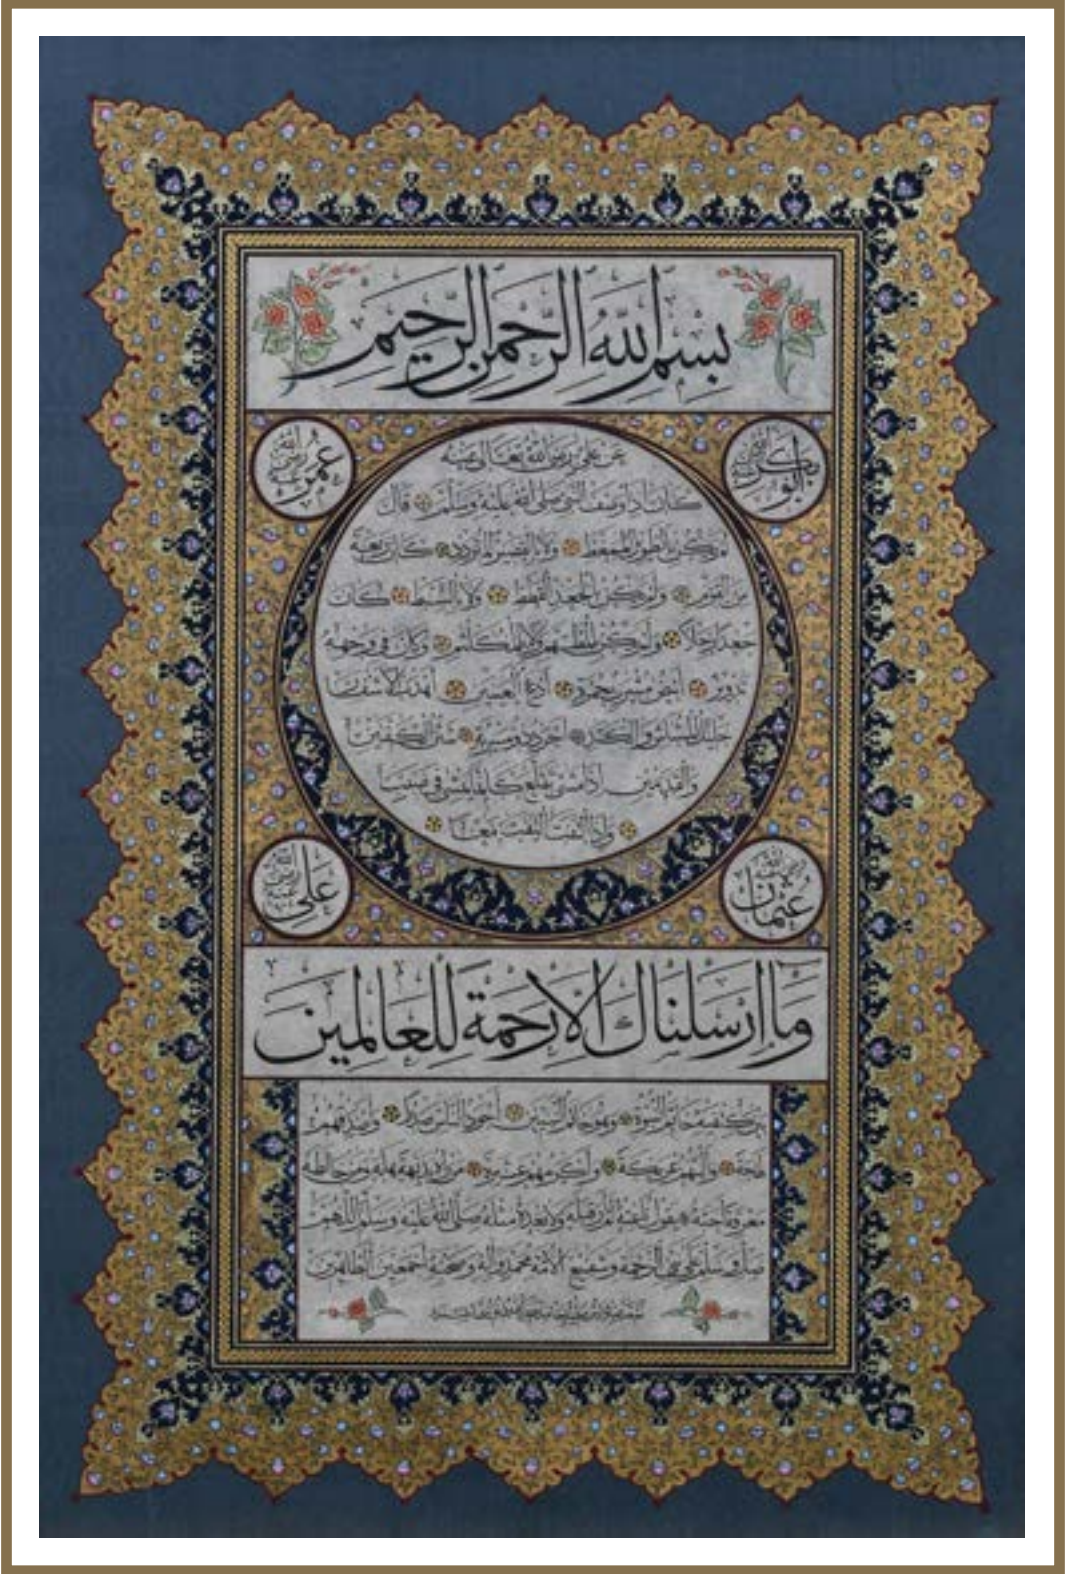 بسم الله الرحمن الرحيم
ابو بكر رضي الله عنه
عمر رضي الله عنه
عن علي رضي الله تعالى عنه
كان اذا وصف النبي صلى الله عليه وسلم قال
لم يكن بالطويل الممغط ولا بالقصير المتردد كان ربعة
من القوم ولم يكن بالجعد القطط ولا بالسبط كان
جعدا رجلا ولم يكن بالمطهم ولا بالمكلثم وكان في وجهه
تدوير ابيض مشرب بحمرة ادعج العينين اهدب الاشفار
جليل المشاش والكتد اجرد ذو مسربة شثن الكفين
والقدمين اذا مشى تقلع كانما يمشي في صبب
واذا التفت التفت معا
عثمان رضي الله عنه
علي رضي الله عنه
وما ارسلناك الا رحمة للعالمين
بين كتفيه خاتم النبوة وهو خاتم النبيين اجود الناس صدرا واصدقهم
لهجة والينهم عريكة واكرمهم عشرة من رآه بديهة هابه ومن خالطه
معرفة احبه يقول ناعته لم ار قبله ولا بعده مثله صلى الله عليه وسلم اللهم
صل وسلم على نبي الرحمة وشفيع الامة محمد وآله وصحبه اجمعين الطاهرين